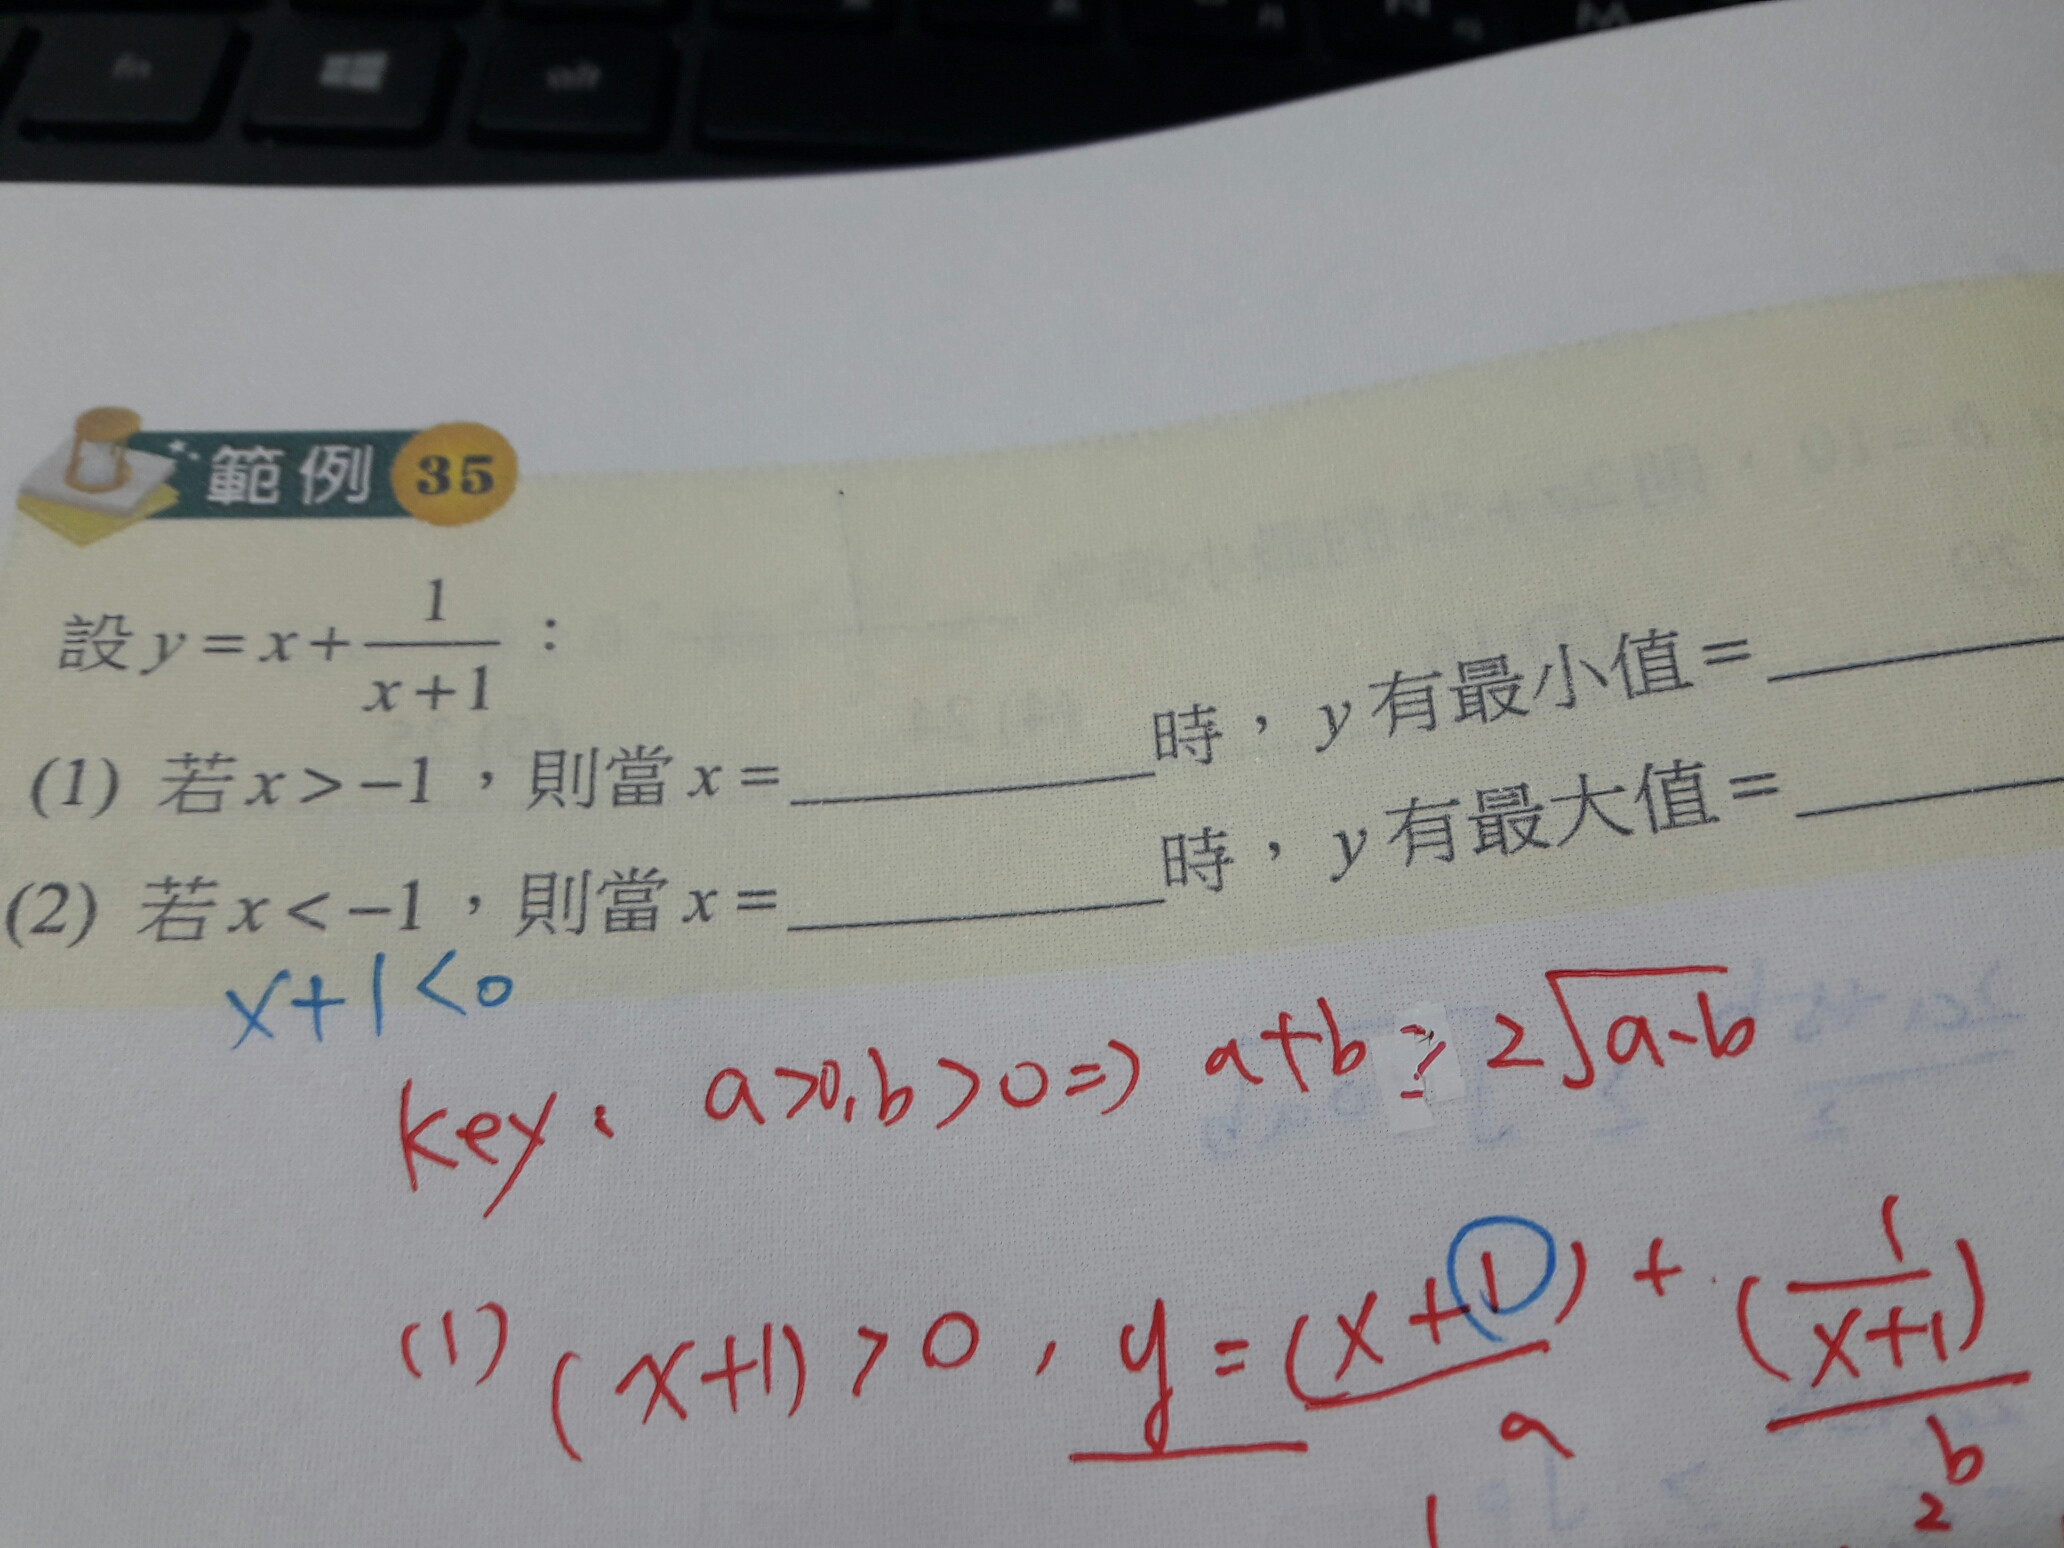 fn alt
範例 35
設 y = x + \frac{1}{x+1} :
(1) 若 x > −1 ，則當 x = ________ 時， y 有最小值 = ________
(2) 若 x < −1 ，則當 x = ________ 時， y 有最大值 = ________
x+1<0
key : a>0, b>0 => a+b ≥ 2√a·b
(1) (x+1) > 0 , y = (x+1) + (\frac{1}{x+1})
a b
2